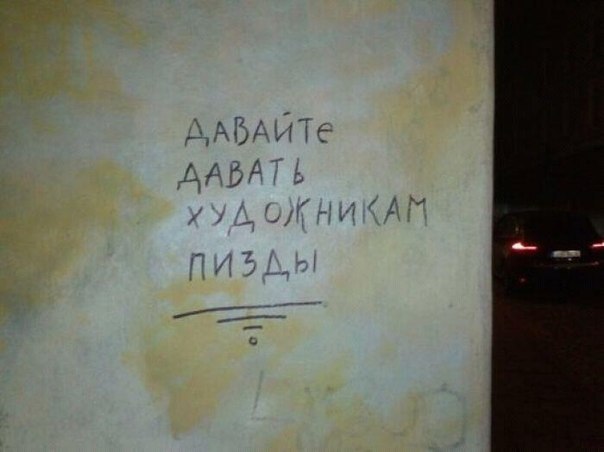 ДАВАЙТе
ДАВАТЬ
ХУДОЖНИКАМ
ПИЗДЫ